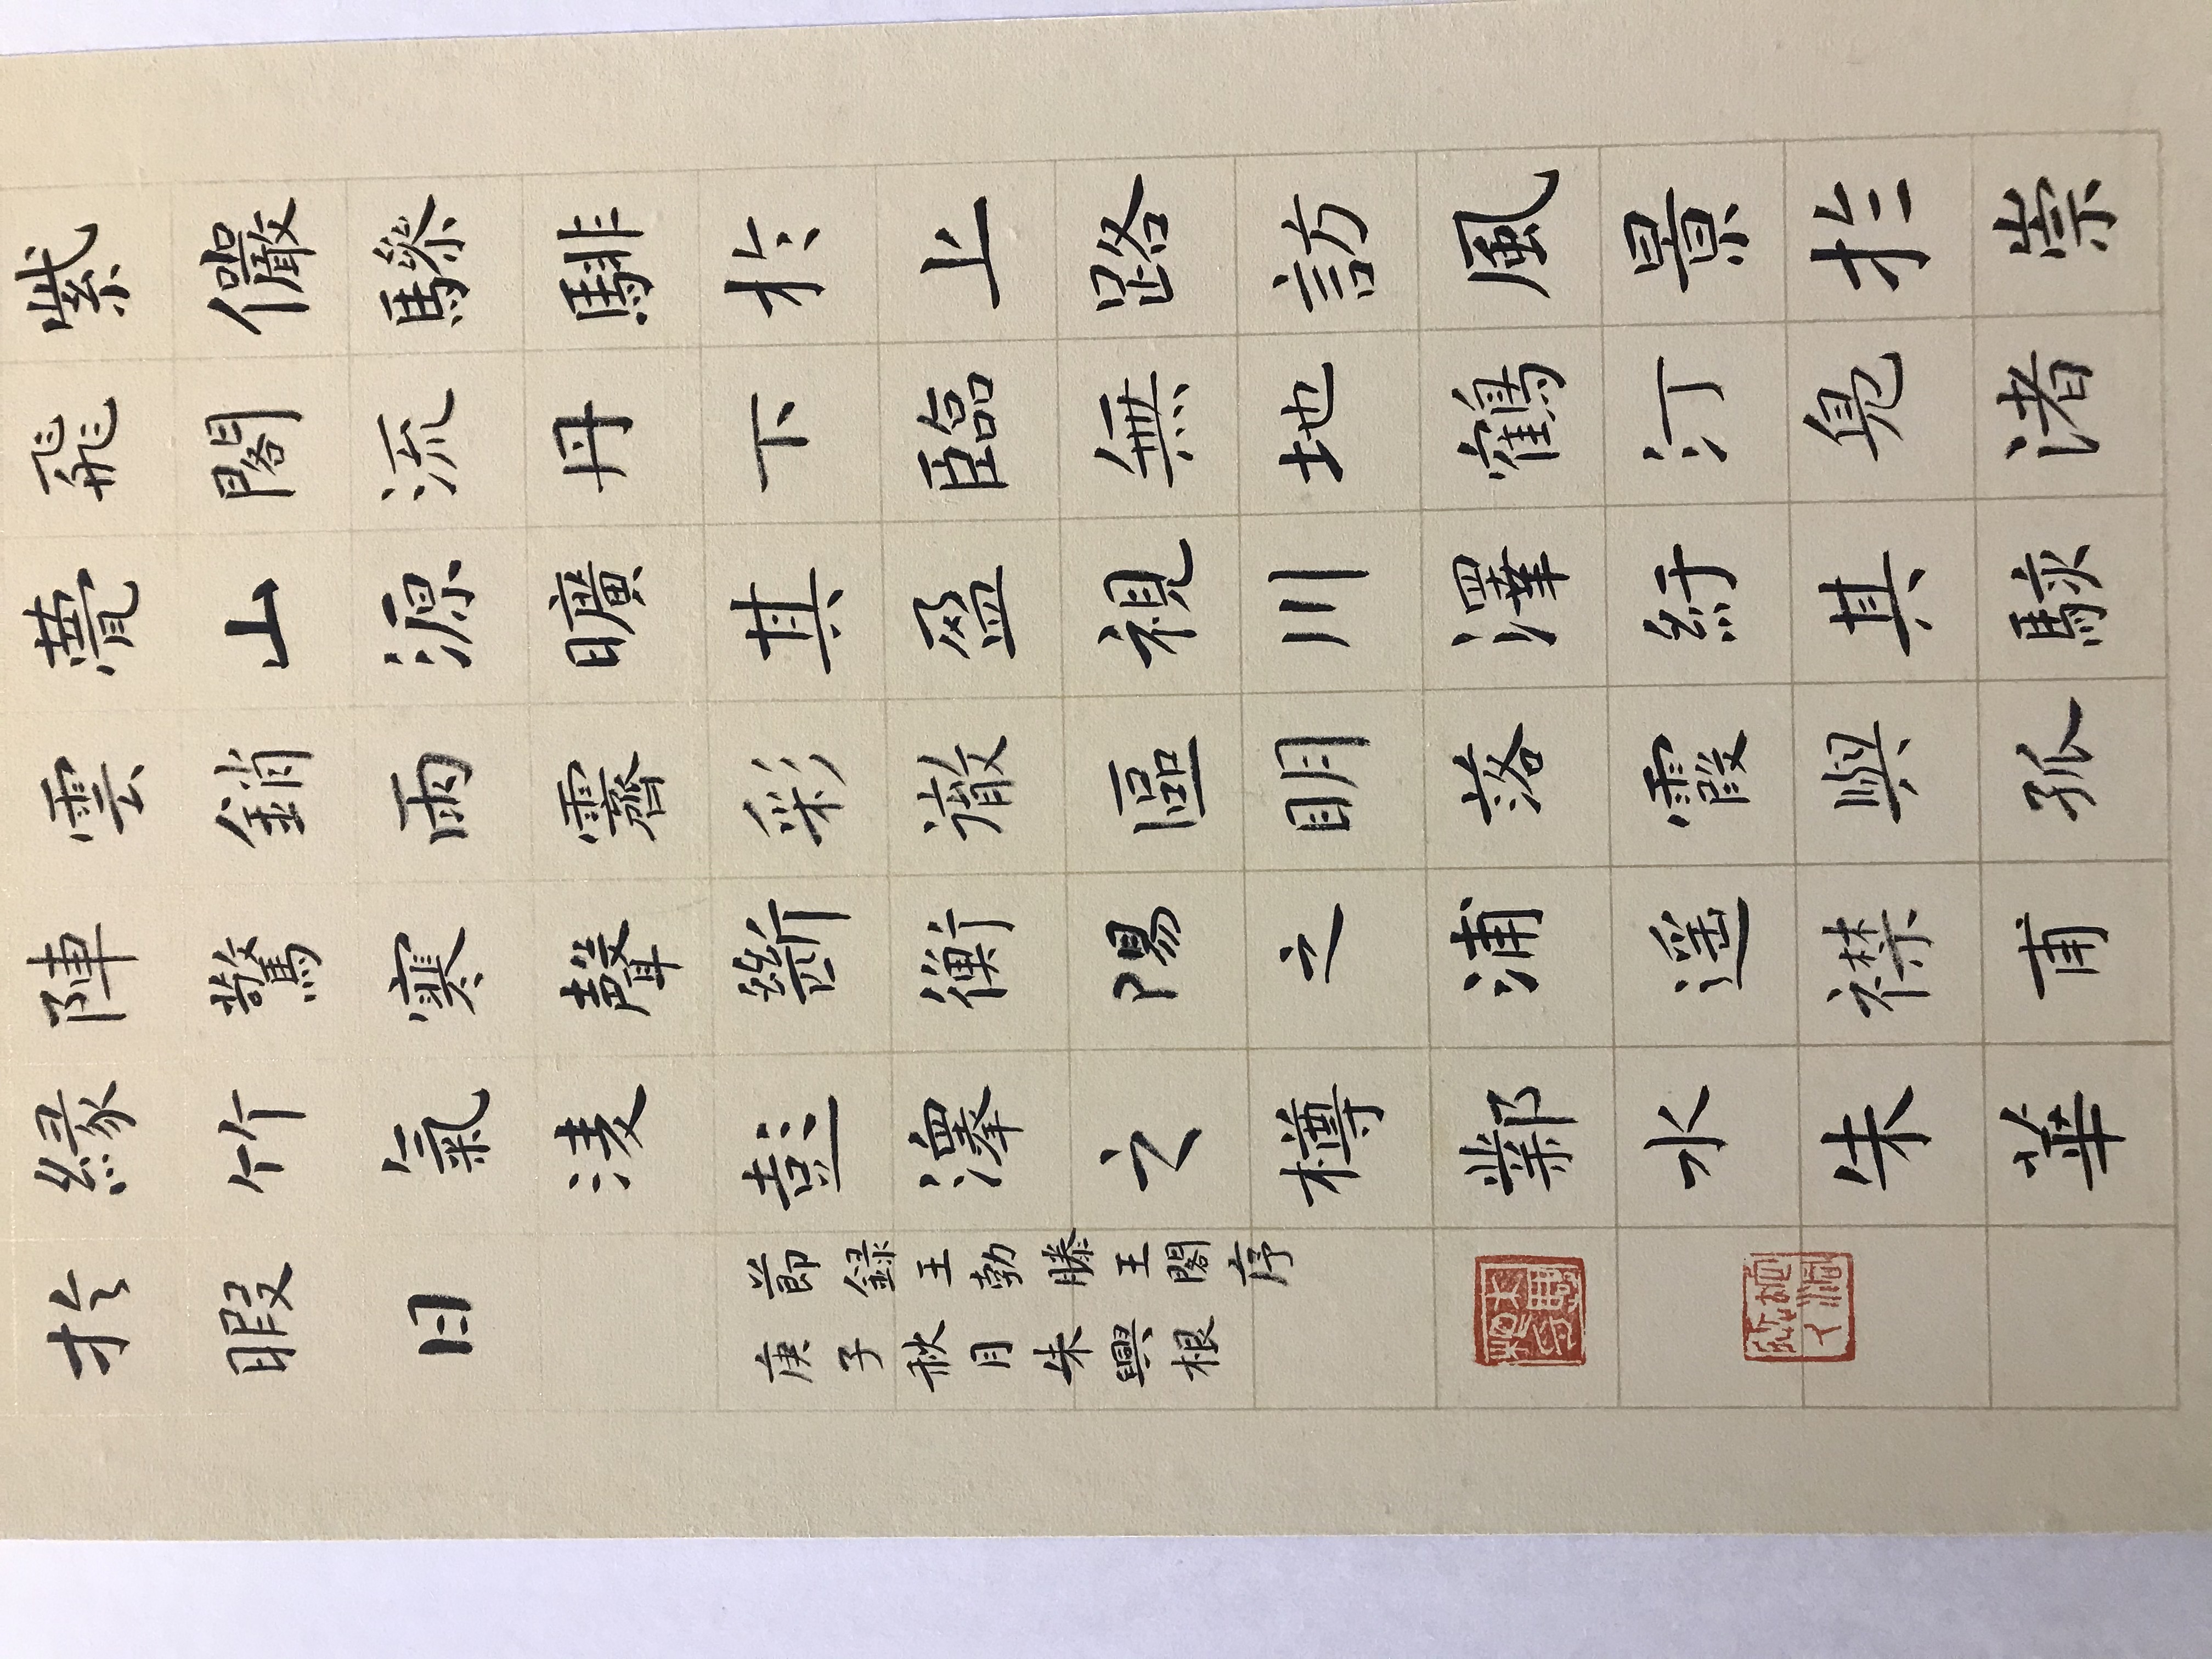 紫儼驂騑於上路訪風景於崇
飛閣流丹下臨無地鶴汀鳧渚
甍山源曠其盈視川澤紆其駭
雲銷雨霽彩徹區明落霞與孤
陣驚寒聲斷衡陽之浦遥襟甫
緣竹氣淩彭澤之樽鄴水朱華
於暇日
節録王勃滕王閣序
庚子秋月朱興根